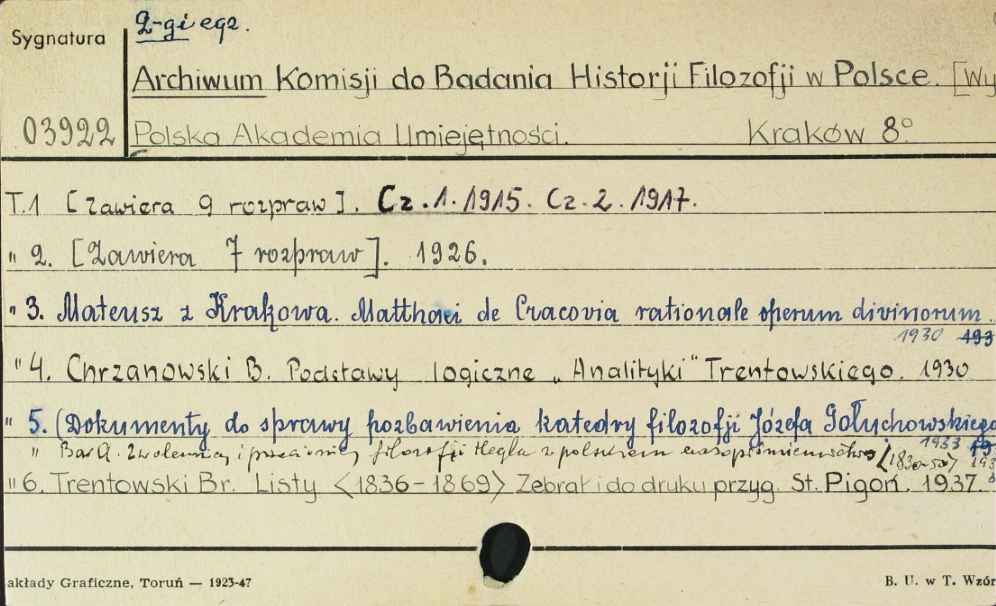 2-gi egz.
Sygnatura
Archiwum Komisji do Badania Historji Filozofji w Polsce. [Wy
03922 Polska Akademia Umiejętności. Kraków 8°
T.1 [zawiera 9 rozpraw]. Cz.1.1915. Cz.2.1917.
" 2. [Zawiera 7 rozpraw]. 1926.
" 3. Mateusz z Krakowa. Matthaei de Cracovia rationale operum divinorum.
1930 193
" 4. Chrzanowski B. Podstawy logiczne „Analityki" Trentowskiego. 1930
" 5. (Dokumenty do sprawy pozbawienia katedry filozofji Józefa Gołuchowskiego
1933
" Bar A. Zwolennicy i przeciwnicy filozofji Hegla w polskiem czasopiśmiennictwie (1830-50) 193
" 6. Trentowski Br. Listy <1836-1869> Zebrał i do druku przyg. St. Pigoń. 1937.
akłady Graficzne, Toruń — 1923-47
B. U. w T. Wzór